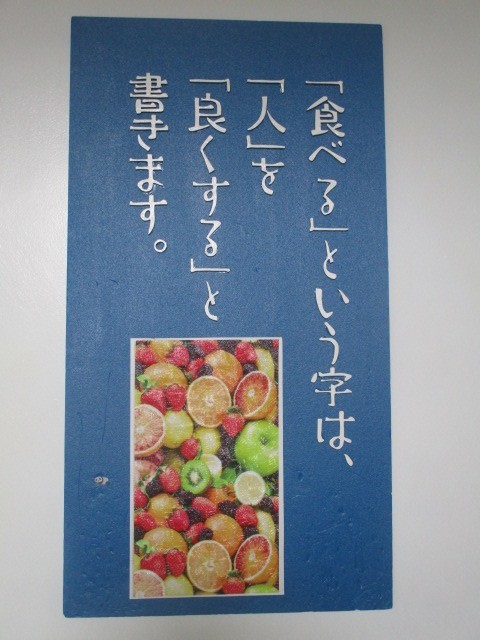 「食べる」という字は、
「人」を
「良くする」と
書きます。